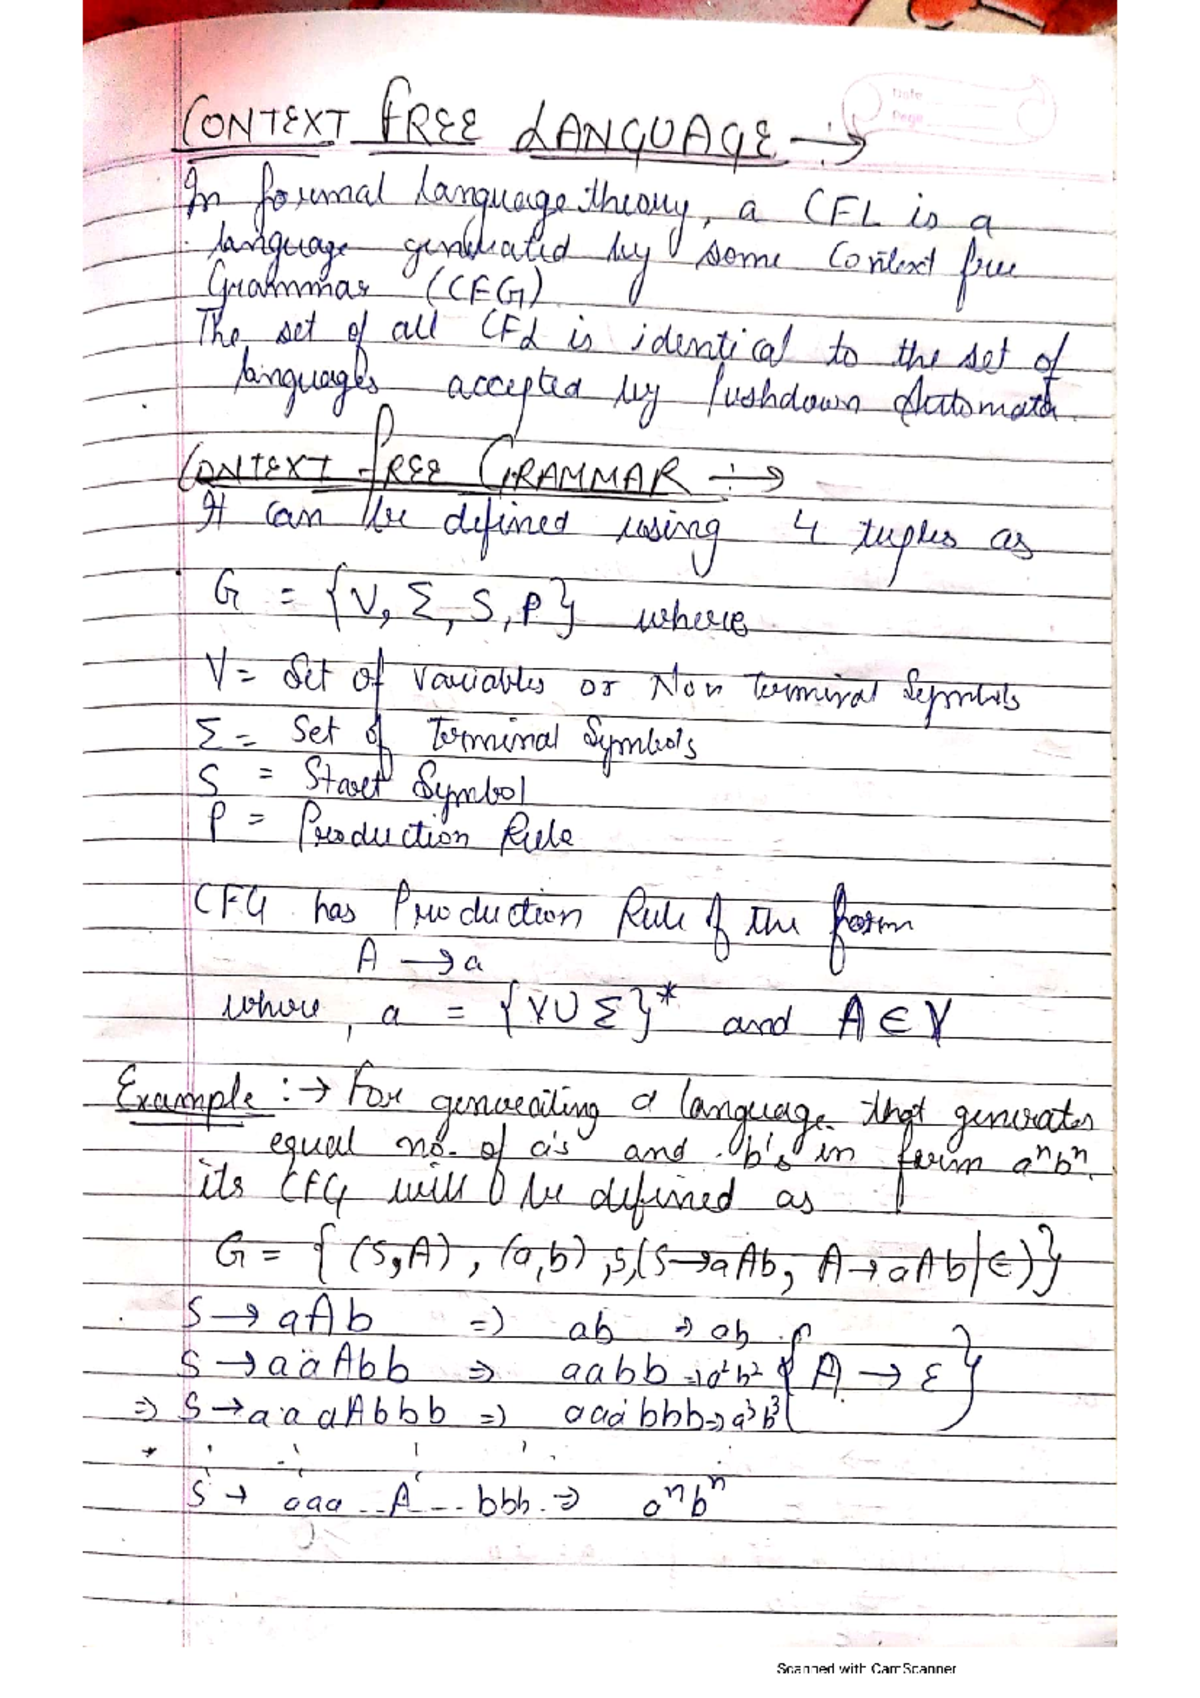 Date
Page
CONTEXT FREE LANGUAGE :→
In formal language theory, a CFL is a
language generated by some Context free
Grammar (CFG)
The set of all CFL is identical to the set of
languages accepted by Pushdown Automata.
CONTEXT FREE GRAMMAR :→
It can be defined using 4 tuples as
G = {V, Σ, S, P} where
V = Set of Variables or Non Terminal Symbols
Σ = Set of Terminal Symbols
S = Start Symbol
P = Production Rule
CFG has Production Rule of the form
A → a
where, a = {V∪Σ}* and A∈V
Example :→ For generating a language that generates
equal no. of a's and b's in form aⁿbⁿ.
its CFG will be defined as
G = { (S,A), (a,b), S, (S→aAb, A→aAb|∈)}
S → aAb ⇒ ab ⇒ ab
S → aaAbb ⇒ aabb ⇒ a²b² {A → ε}
⇒ S → aaaAbbb ⇒ aaabbb ⇒ a³b³
S → aaa..A...bbb. ⇒ aⁿbⁿ
Scanned with CamScanner